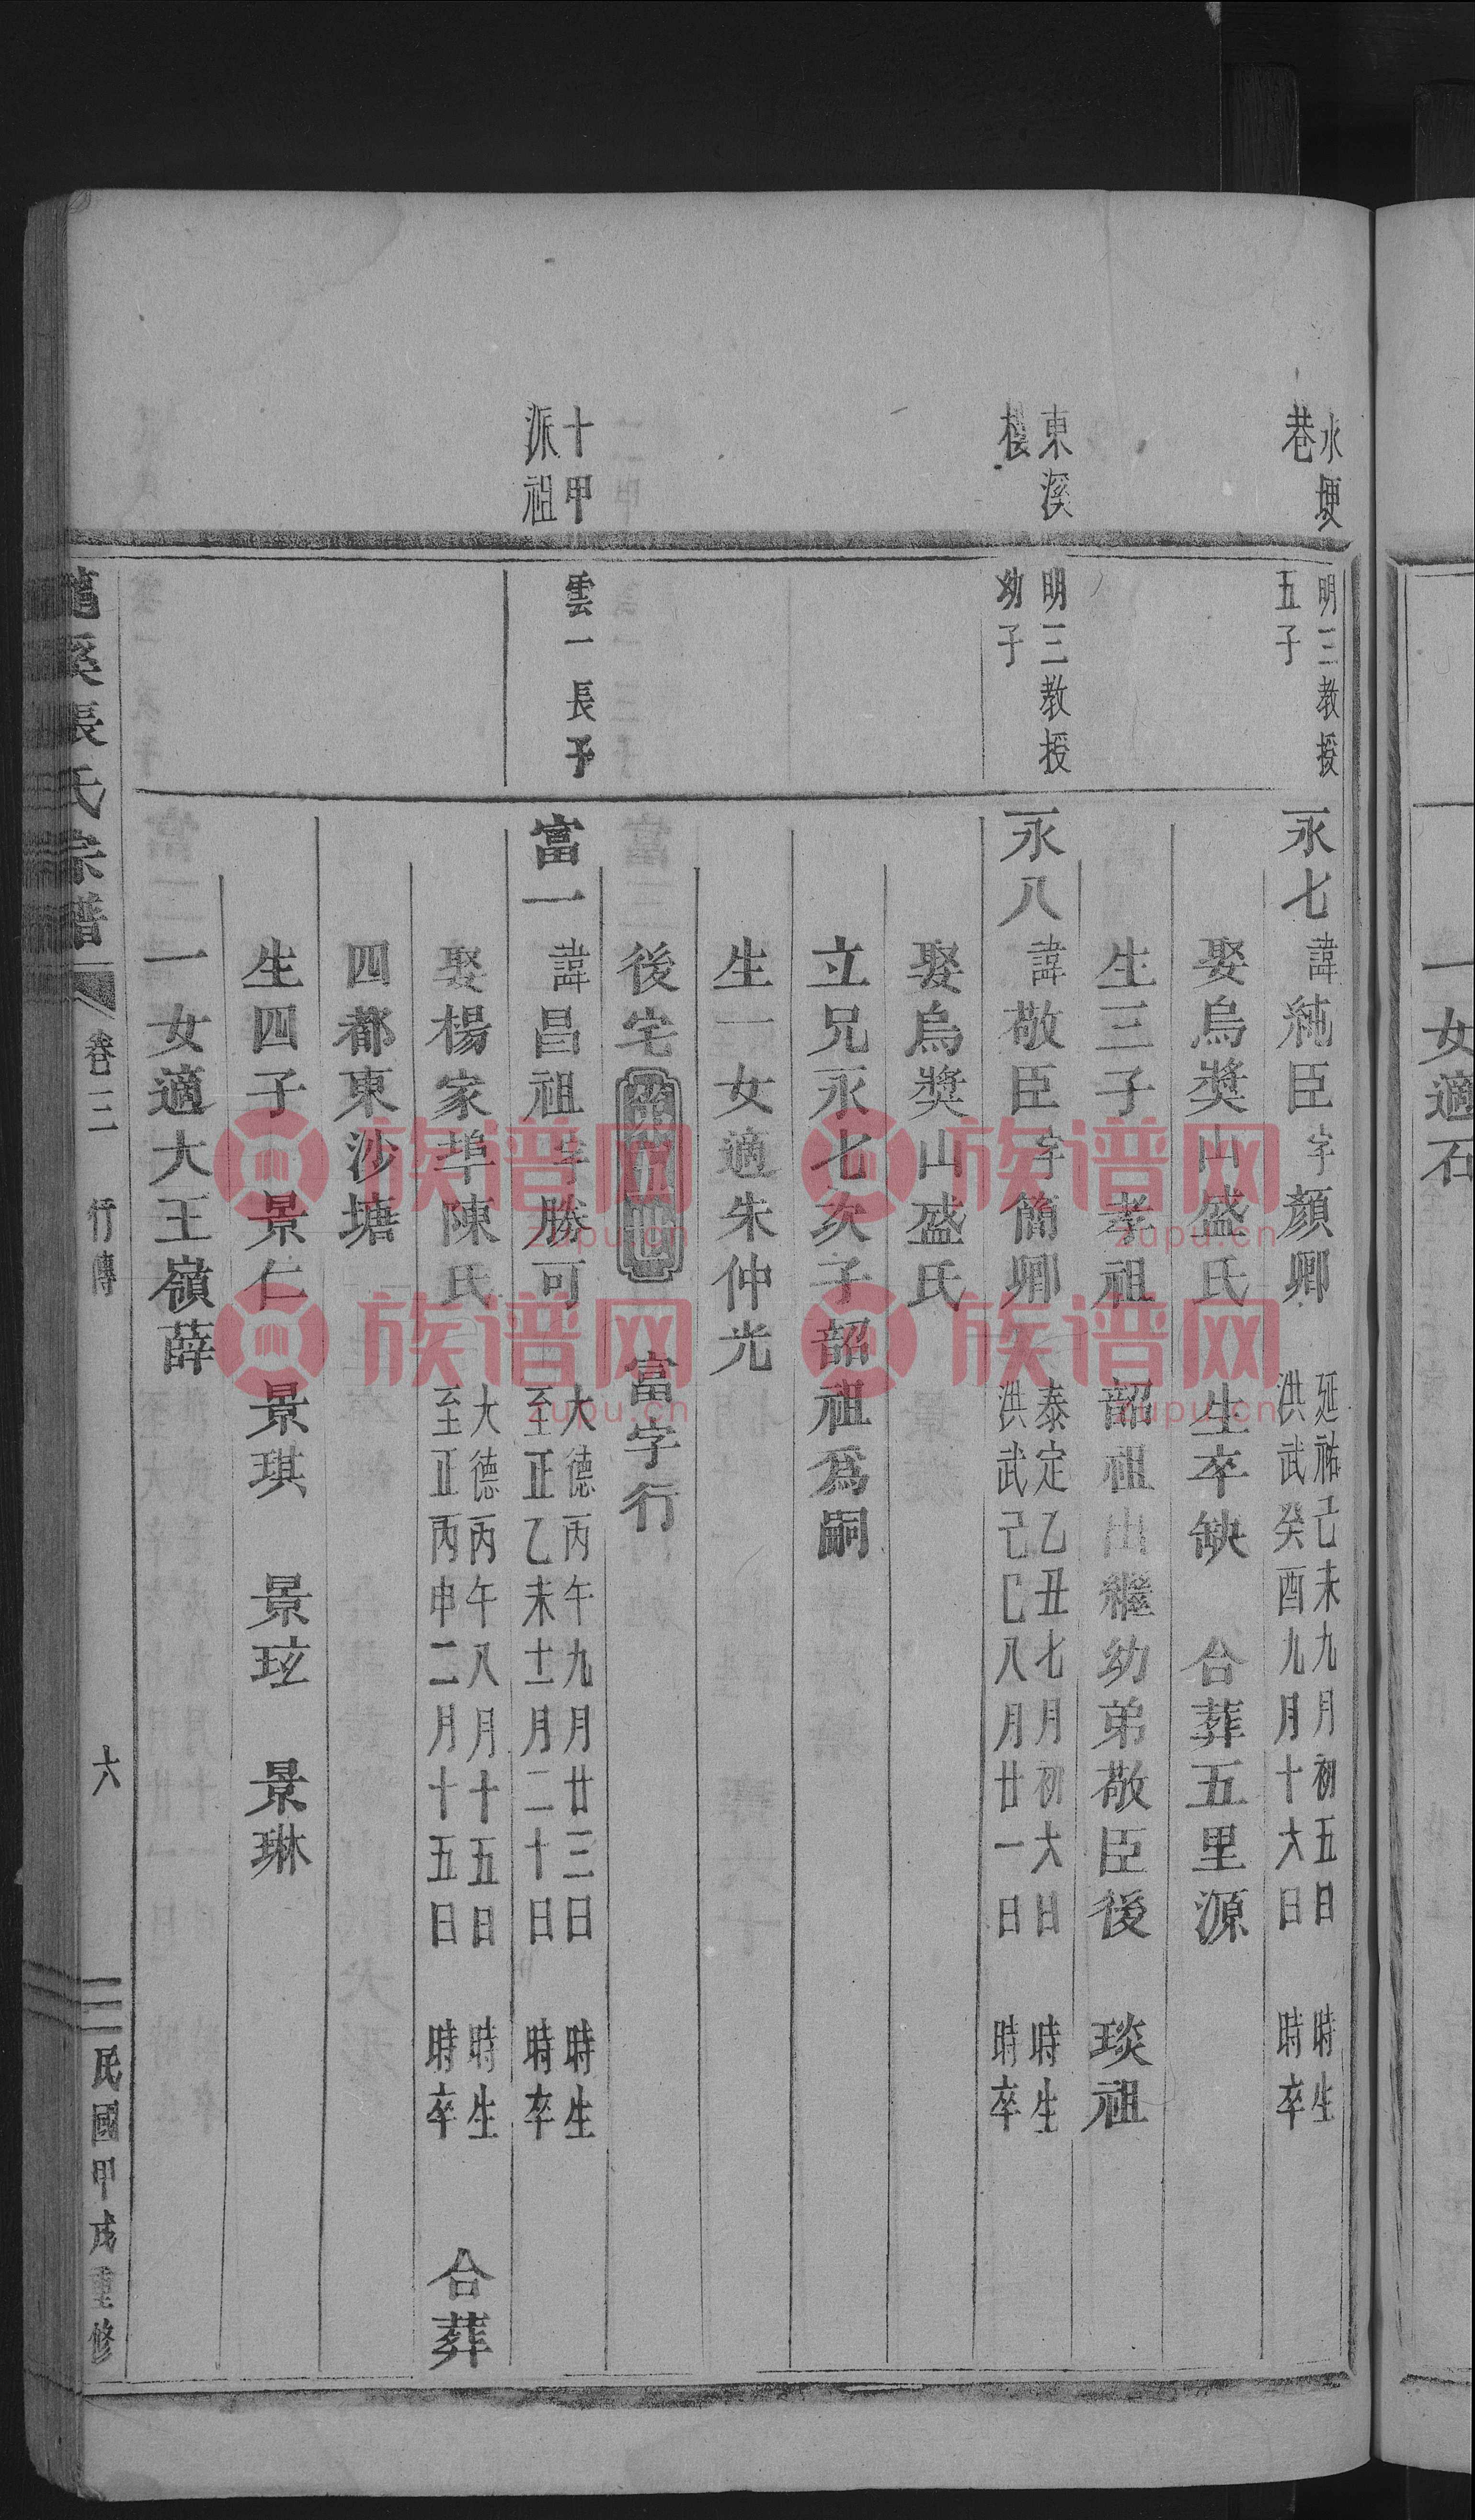 一女適石
永埂
巷
明三教授
五子
永七 諱純臣字顏卿 延祐己未九月初五日 時生
洪武癸酉九月十六日 時卒
娶烏獎山盛氏 生卒缺 合葬五里源
生三子 孝祖 韶祖出繼幼弟敬臣後 琰祖
東溪
樓
明三教授
幼子
永八 諱敬臣字簡卿 泰定乙丑七月初六日 時生
洪武己巳八月廿一日 時卒
娶烏獎山盛氏
立兄永七次子韶祖爲嗣
生一女適朱仲光
後宅第五世 富字行
十甲
派祖
雲一長子
富一 諱昌祖字勝可 大德丙午九月廿三日 時生
至正乙未十二月二十日 時卒
娶楊家埠陳氏 大德丙午八月十五日 時生
至正丙申二月十五日 時卒 合葬
四都東沙塘
生四子 景仁 景琪 景玹 景琳
一女適大王嶺薛
龍溪張氏宗譜 卷三 行傳 六 民國甲戌重修
族谱网
zupu.cn
族谱网
zupu.cn
族谱网
zupu.cn
族谱网
zupu.cn